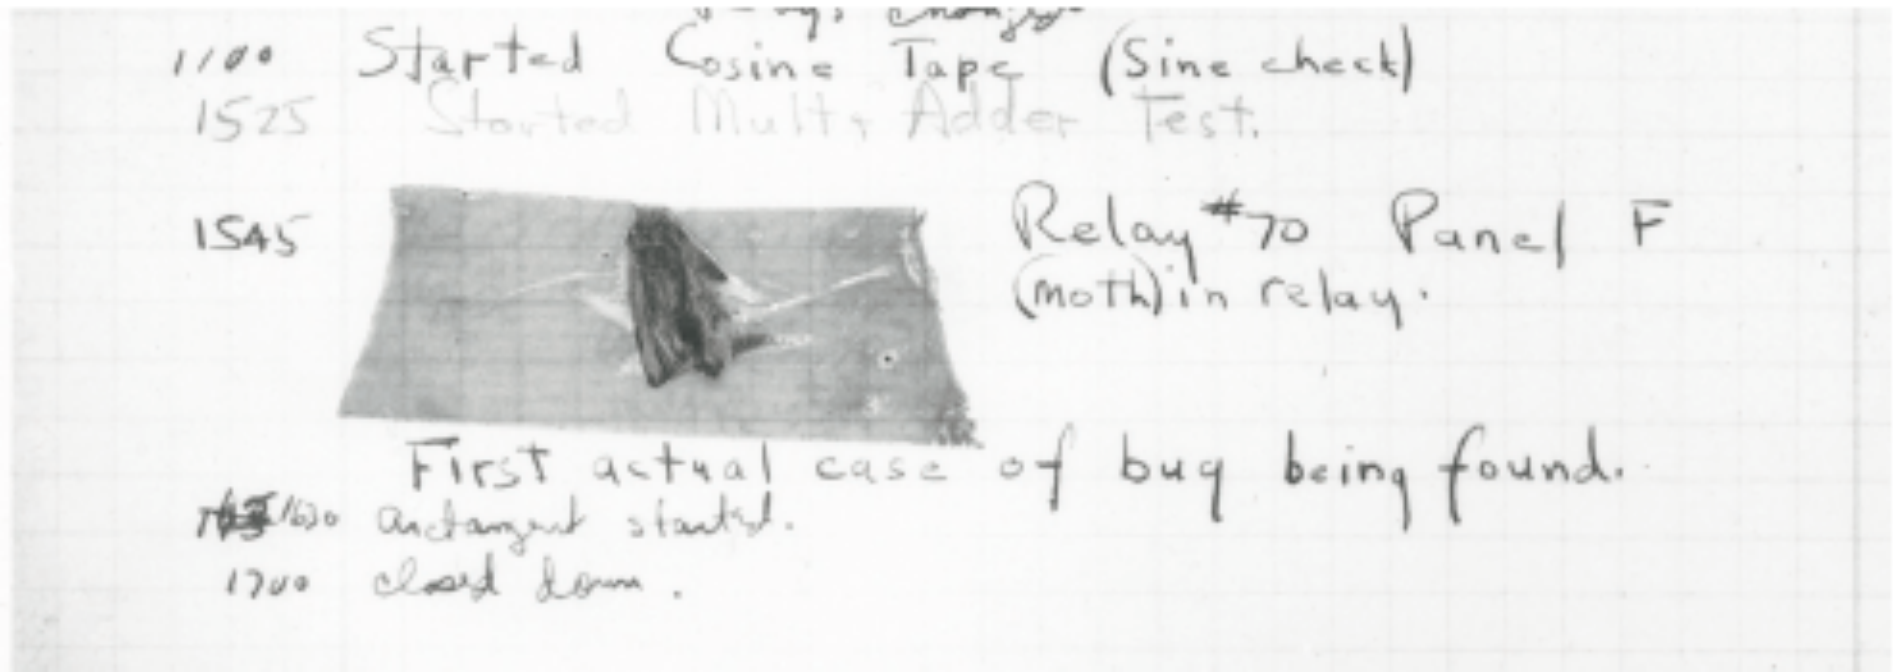 changed
1100 Started Cosine Tape (Sine check)
1525 Started Mult+ Adder Test.
1545 Relay #70 Panel F
(moth) in relay.
First actual case of bug being found.
1630 arctangent started.
1700 closed down.